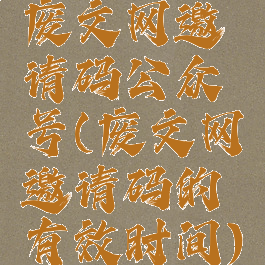 废文网邀
请码公众
号(废文网
邀请码的
有效时间)